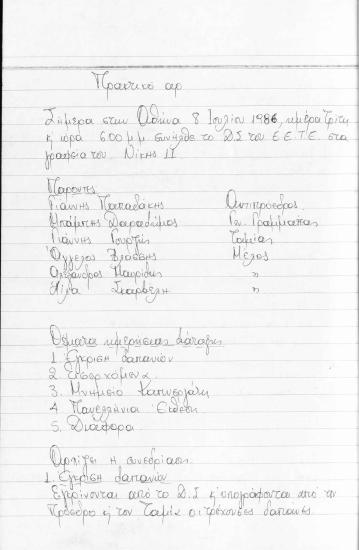 Πρακτικό αρ
Σήμερα στην Αθήνα 8 Ιουλίου 1986, ημέρα Τρίτη
κ ώρα 6.00 μμ συνήλθε το Δ.Σ του Ε.Ε.Τ.Ε. στα
γραφεία του Νίκης 11
Παρόντες
Γιάννης Παπαδάκης Αντιπρόεδρος
Μπάμπης Δαραδήμος Γεν. Γραμματέας
Γιάννης Γουρζής Ταμίας
Άγγελος Βλάσσης Μέλος
Αλέξανδρος Μαυρίδης "
Λίλα "
Θέματα ημερήσιας διάταξης
1. Έγκριση δαπανών
2. Εισερχόμενα
3. Μνημείο Καπνεργάτη
4. Πανελλήνια Έκθεση
5. Διάφορα
Αρχίζει η συνεδρίαση.
1. Έγκριση δαπανών
Εγκρίνονται από το Δ.Σ κ υπογράφονται από τον
Πρόεδρο κ τον Ταμία οι τρέχουσες δαπάνες.